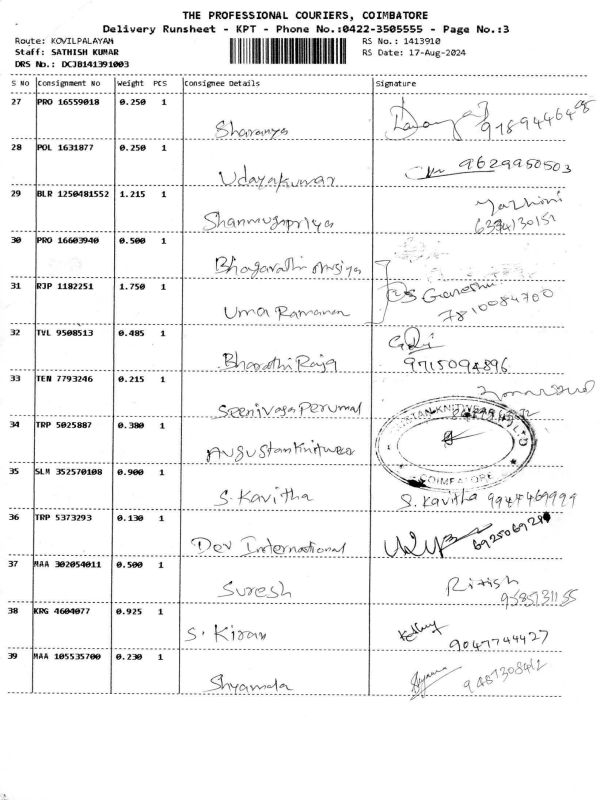 THE PROFESSIONAL COURIERS, COIMBATORE
Delivery Runsheet - KPT - Phone No.:0422-3505555 - Page No.:3
Route: KOVILPALAYAM
RS No.: 1413910
Staff: SATHISH KUMAR
RS Date: 17-Aug-2024
DRS No.: DCJB141391003
S No Consignment No Weight PCS Consignee Details Signature
27 PRO 16559018 0.250 1 Sharanya
28 POL 1631877 0.250 1 Udayakumar 9629950503
29 BLR 1250481552 1.215 1 Shanmugapriya 6384130152
30 PRO 16603940 0.500 1 Bhagarathi
31 RJP 1182251 1.750 1 Uma Ramanan S Ganesh 7810084700
32 TVL 9508513 0.485 1 Bharathi Raja 9715094896
33 TEN 7793246 0.215 1 Seenivasa Perumal
34 TRP 5025887 0.380 1 Augustan Knitwear COIMBATORE
35 SLM 352570108 0.900 1 S. Kavitha S. Kavitha 9944469929
36 TRP 5373293 0.130 1 Dev International
37 MAA 302054011 0.500 1 Suresh Ritish
38 KRG 4604077 0.925 1 S. Kiran 9047744427
39 MAA 105535700 0.230 1 Shyamala 9487308412